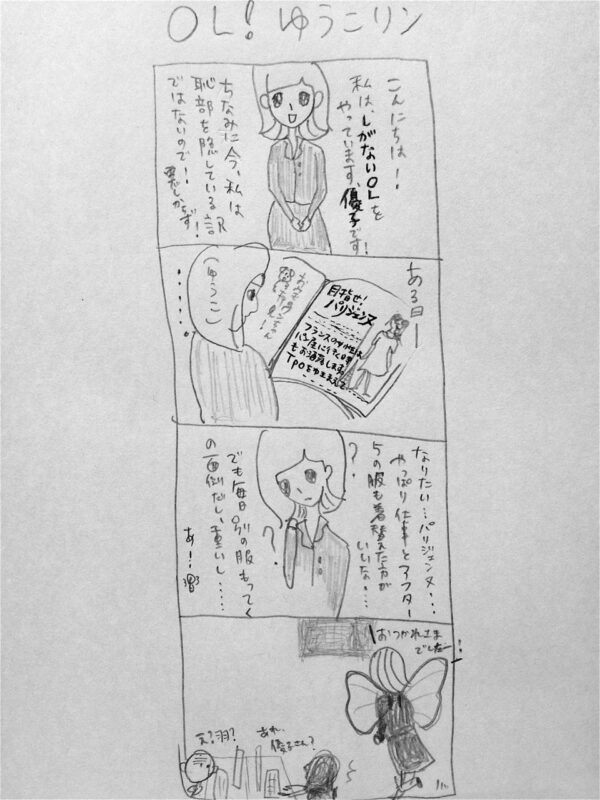 OL! ゆうこリン
こんにちは!
私は、しがないOLを
やっています、優子です!
ちなみに今、私は
恥部を隠している訳
ではないので!
悪しからず!
ある日―
目指せ!
パリジェンヌ
フランスの女性は
パン屋に行く時
もお洒落します
TPOをわきまえて
(ゆうこ)
なりたい…パリジェンヌ…
やっぱり仕事とアフター
5の服も着替えた方が
いいな……
?
でも毎日別の服もってく
の面倒だし、重いし……
?
あ!
おつかれさま
でしたー!!
あれ、
優子さん?
え?羽?